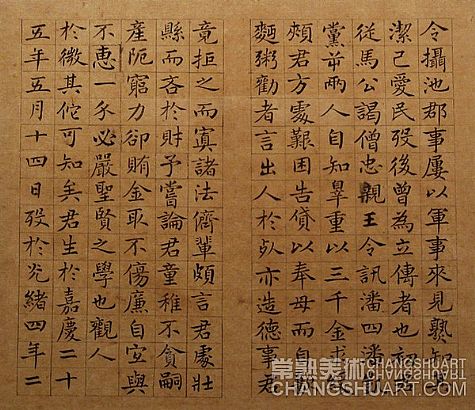 令攝池郡事屢以軍事來見熟
潔己愛民歿後曾為立傳者也初
從馬公謁僧忠親王令訊潘四潘
黨並兩人自知辠重以三千金求
頗君方處艱困告貸以奉母而自
麪粥勸者言出人於死亦造德事君
竟拒之而寘諸法儕輩頗言君處壯
縣而吝於財予嘗論君童稚不貪嗣
產阨窮力卻賄金取不傷廉自安與
不惠一介必嚴聖賢之學也觀人
於微其佗可知矣君生於嘉慶二十
五年五月十四日歿於光緒四年二
常熟美術
CHANGSHUART.COM